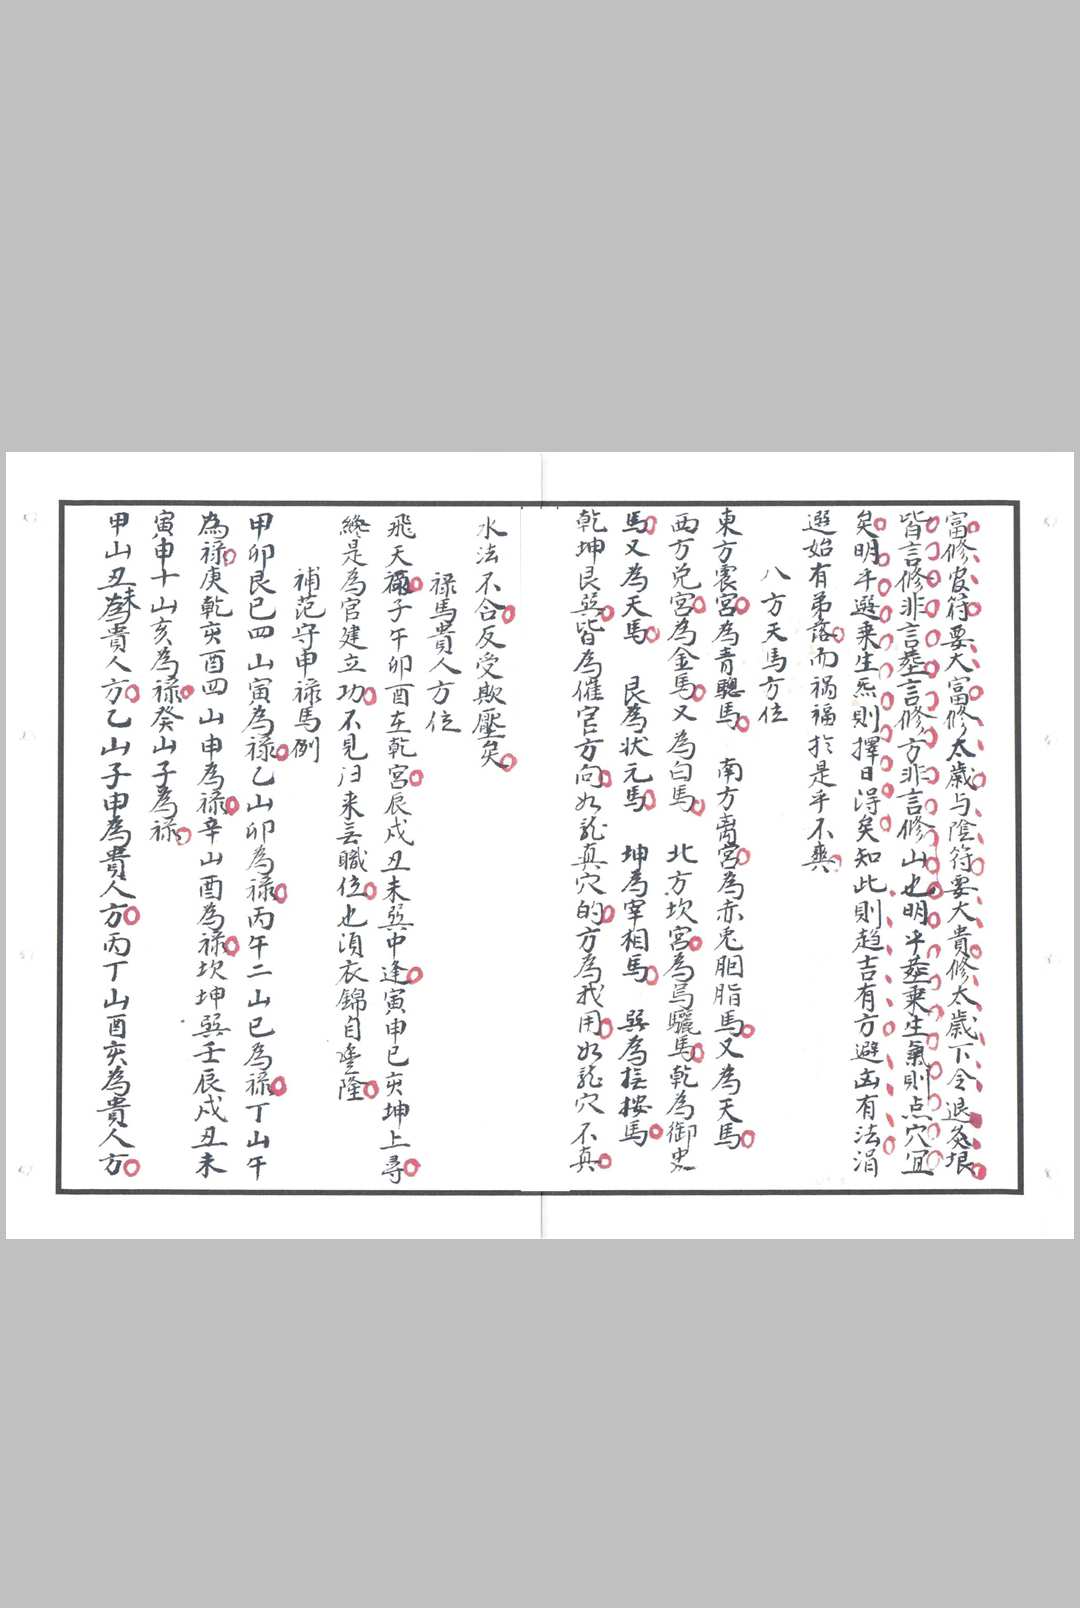 富修官符要大富修太歲与陰符要大貴修太歲下令退灸垠
皆言修非言塟言修方非言修山也明乎塟乘生氣則点穴宜
矣明乎選乘生炁則擇日得矣知此則趋吉有方避凶有法涓
選始有弟落而禍福於是乎不爽
八方天馬方位
東方震宮為青驄馬 南方离宮為赤兎胭脂馬又為天馬
西方兑宮為金馬又為白馬 北方坎宮為烏驪馬乾為御史
馬又為天馬 艮為状元馬 坤為宰相馬 巽為按馬
乾坤艮巽皆為催官方向如龍真穴的方為我用如龍穴不真
水法不合反受欺壓矣
禄馬貴人方位
飛天禄子午卯酉在乾宮辰戍丑未巽中逢寅申巳亥坤上尋
終是為官建立功不見汩来無職位也須衣錦自豊隆
補范守申禄馬例
甲卯艮巳四山寅為禄乙山卯為禄丙午二山巳為禄丁山午
為禄庚乾亥酉四山申為禄辛山酉為禄坎坤巽壬辰戍丑未
寅申十山亥為禄癸山子為禄
甲山丑未為貴人方乙山子申為貴人方丙丁山酉亥為貴人方